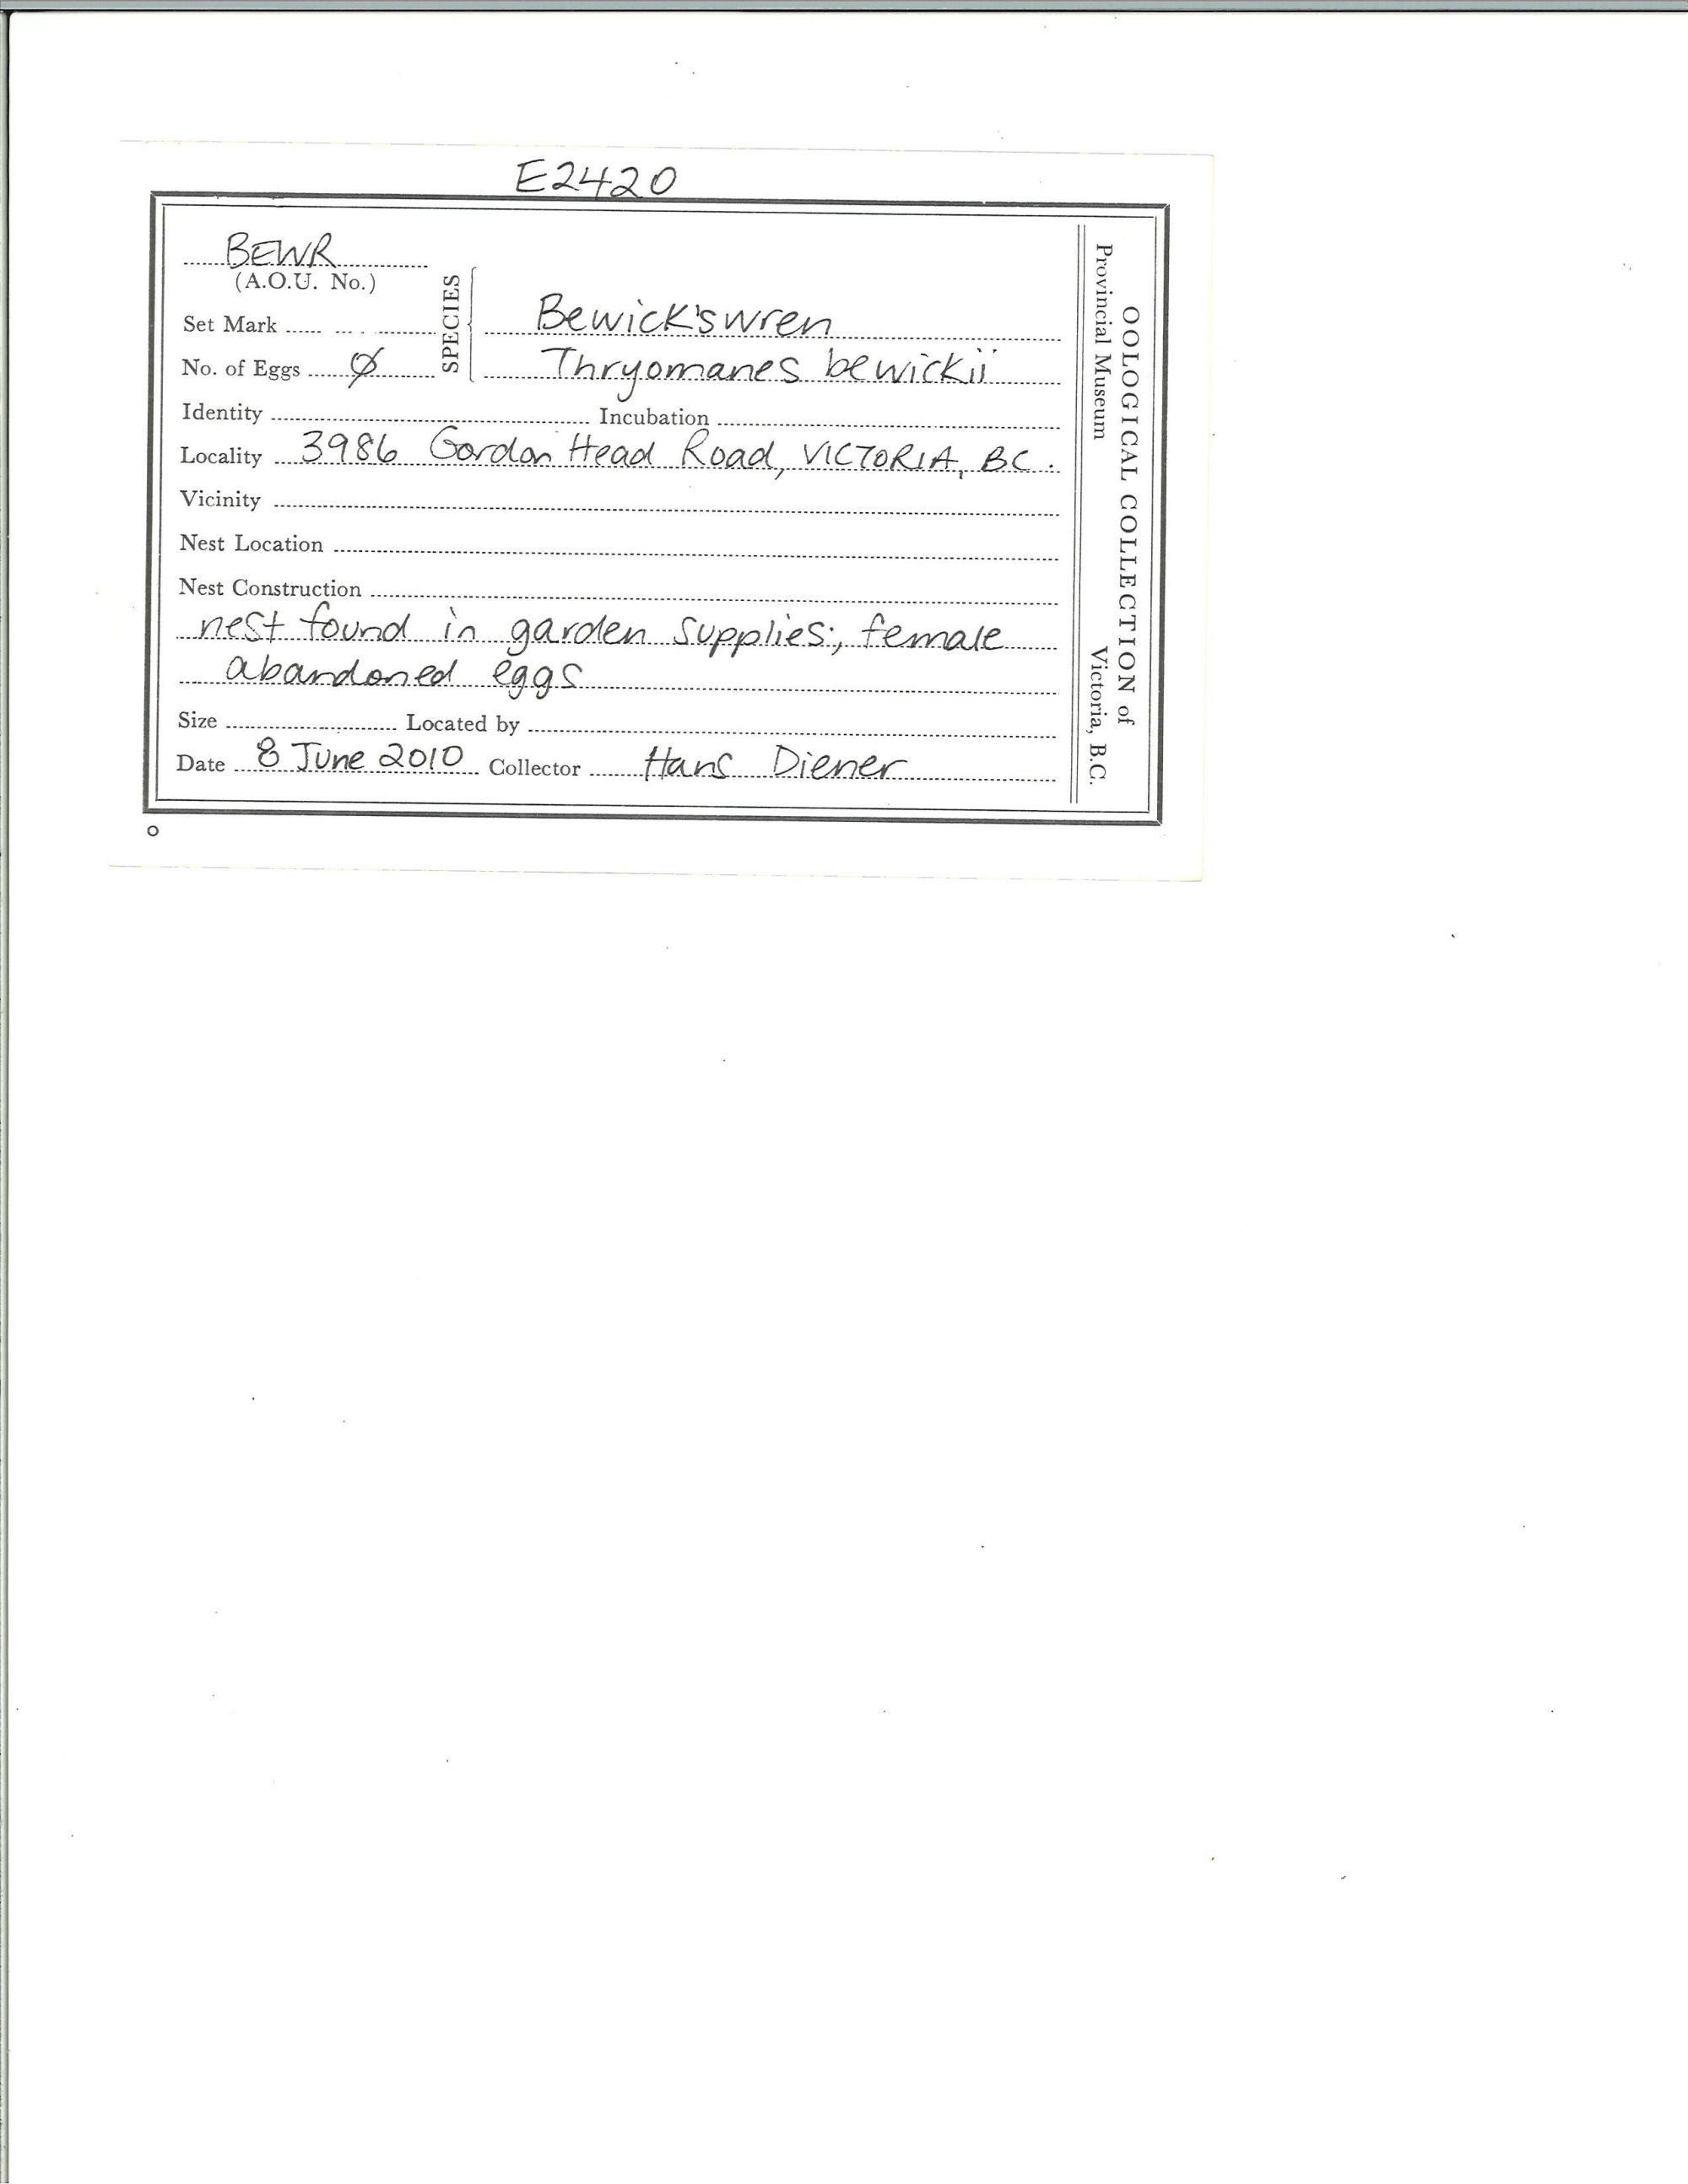 E2420
BEWR
(A.O.U. No.)
SPECIES
Bewick's wren
Set Mark
Thryomanes bewickii
No. of Eggs ∅
Identity Incubation
Locality 3986 Gordon Head Road, VICTORIA, BC.
Vicinity
Nest Location
Nest Construction
nest found in garden supplies; female
abandoned eggs
Size Located by
Date 8 June 2010 Collector Hans Diener
OOLOGICAL COLLECTION of
Provincial Museum Victoria, B.C.